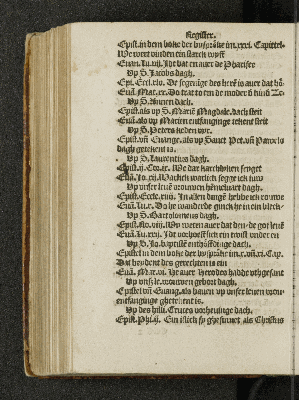 Register.
Epist. in dem boke der bysprake im. xxxi. Capittel.
We wert vinden ein starck wyff
Euan. Lu. vij. Jdt bat en auer de Phariseer
Vp S. Jacobs dagh.
Epi. Eccl. xlv. De segeninge des heren is auer dat hö:
Euan. Mat. xx. Do trat to em de moder d kinder Ze:
Vp S. Annen dach.
Epist. als vp S. Marie Magdale. dach steit
Euan. als vp Marien entfanginge tekent steit
Vp S. Peters keden vyr.
Epist. vn Euange. als vp Sanct Pet. vn Pawels
dagh getekent is.
Vp S. Laurentius dagh.
Epist. ij. Cor. ix. We dar karchlyken seyget
Euan. Jo. xij. Warlick warlick segge ick juw
Vp vnser leue vrouwen hemeluart dagh.
Epist. Eccle. xxiiij. In allen dinge hebbe ick rouwe
Euan. Lu. x. Do he wanderde ginck he in ein bleck
Vp S. Bartolomeus dagh.
Epist. Ro. viij. Wy weten auer dat den de got leue
Euan. Lu. xxij. Jdt vorhoeff sick ein twist vnder en
Vp S. Jo. baptiste enthöffdinge dach.
Epistel in dem boke der bysprake im. x. vn xi. Cap.
Dat beydent des gerechten is ein
Euan. Mar. vi. De auer Herodes hadde vthgesant
Vp vnser le. vrouwen gebort dagh.
Epistel vn Euang. als bauen vp vnser leuen vrouwen
entfanginge getekent is.
Vp des hilli. Cruces vorheuinge dach.
Epist. Phi. ij. Ein islick sy gesinnet als Christus